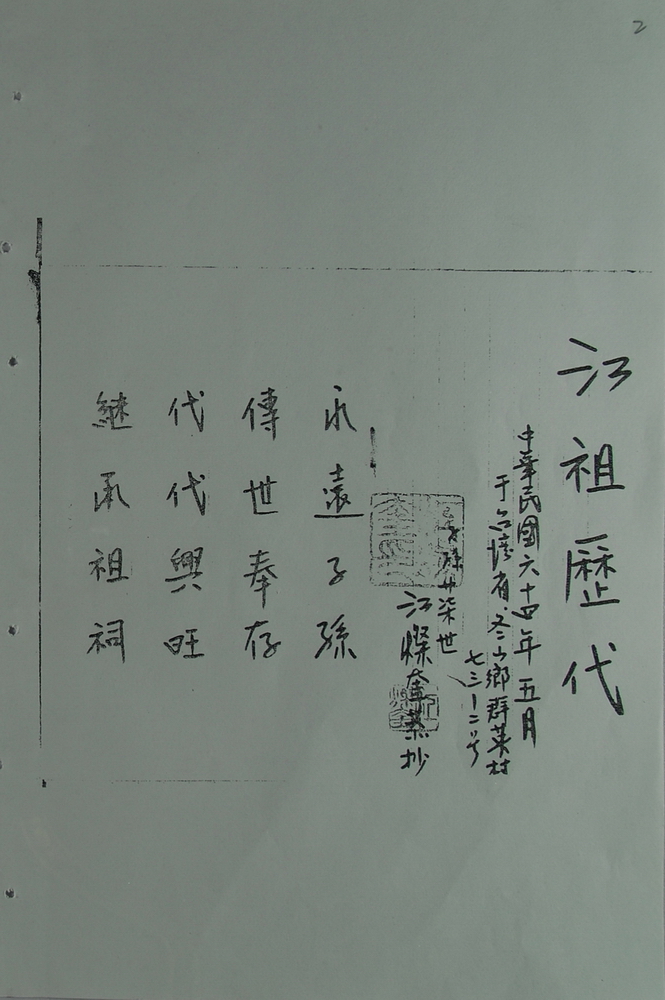 2
江祖歷代
中華民國六十四年五月
于台湾省冬山鄉群英村
七三ー二号
孫廿柒世
江燦奉恭抄
永遠子孫
傳世奉存
代代興旺
継承祖祠